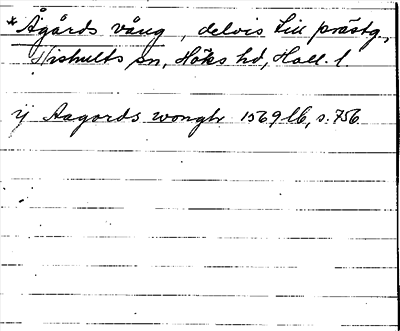 * Ågårds vång, delvis till prästg.,
Hishults sn, Höks hd, Hall. l
ij Aagords wongh 1569 lb, s. 756